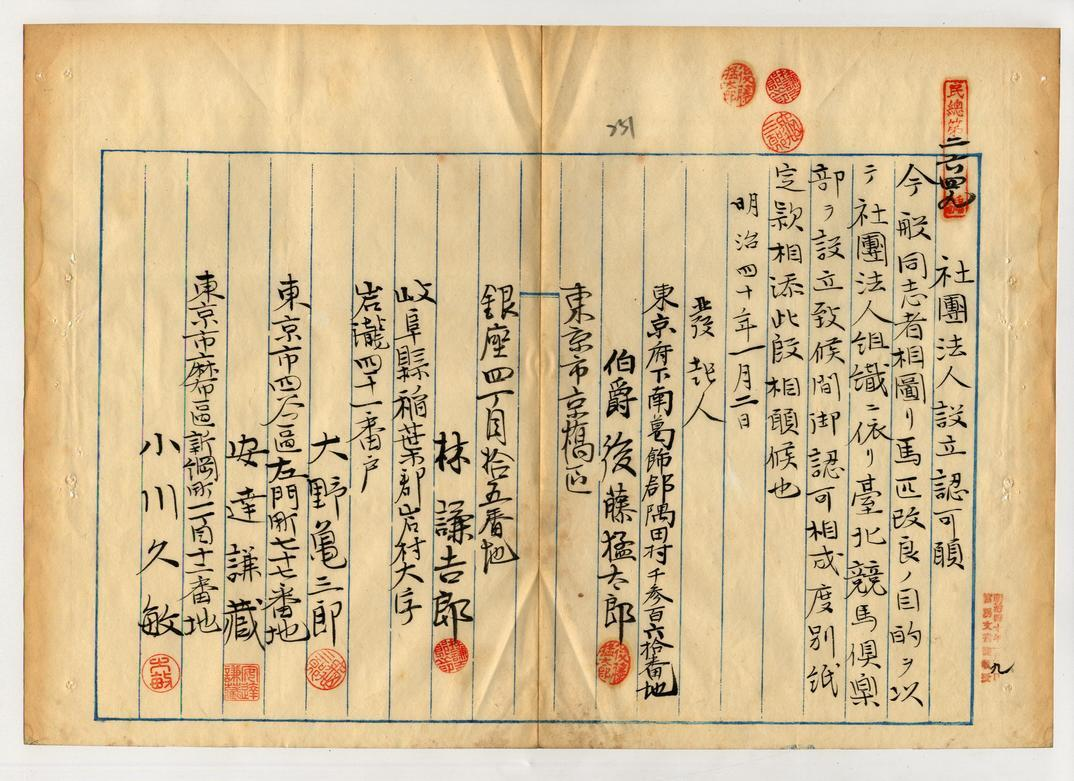 民總第二六四九
社團法人設立認可願
今般同志者相圖リ馬匹改良ノ目的ヲ以
テ社團法人組織ニ依リ臺北競馬倶樂
部ヲ設立致候間御認可相成度別紙
定款相添此段相願候也
明治四十年一月二日
發起人
東京府下南葛飾郡隅田村千参百六拾番地
伯爵後藤猛太郎
東京市京橋區
銀座四丁目拾五番地
林謙吉郎
岐阜縣稲葉郡岩村大字
岩瀧四十一番戸
大野亀三郎
東京市四谷區左門町七十七番地
安達謙藏
東京市麻布區新網町一丁目十二番地
小川久敏
231